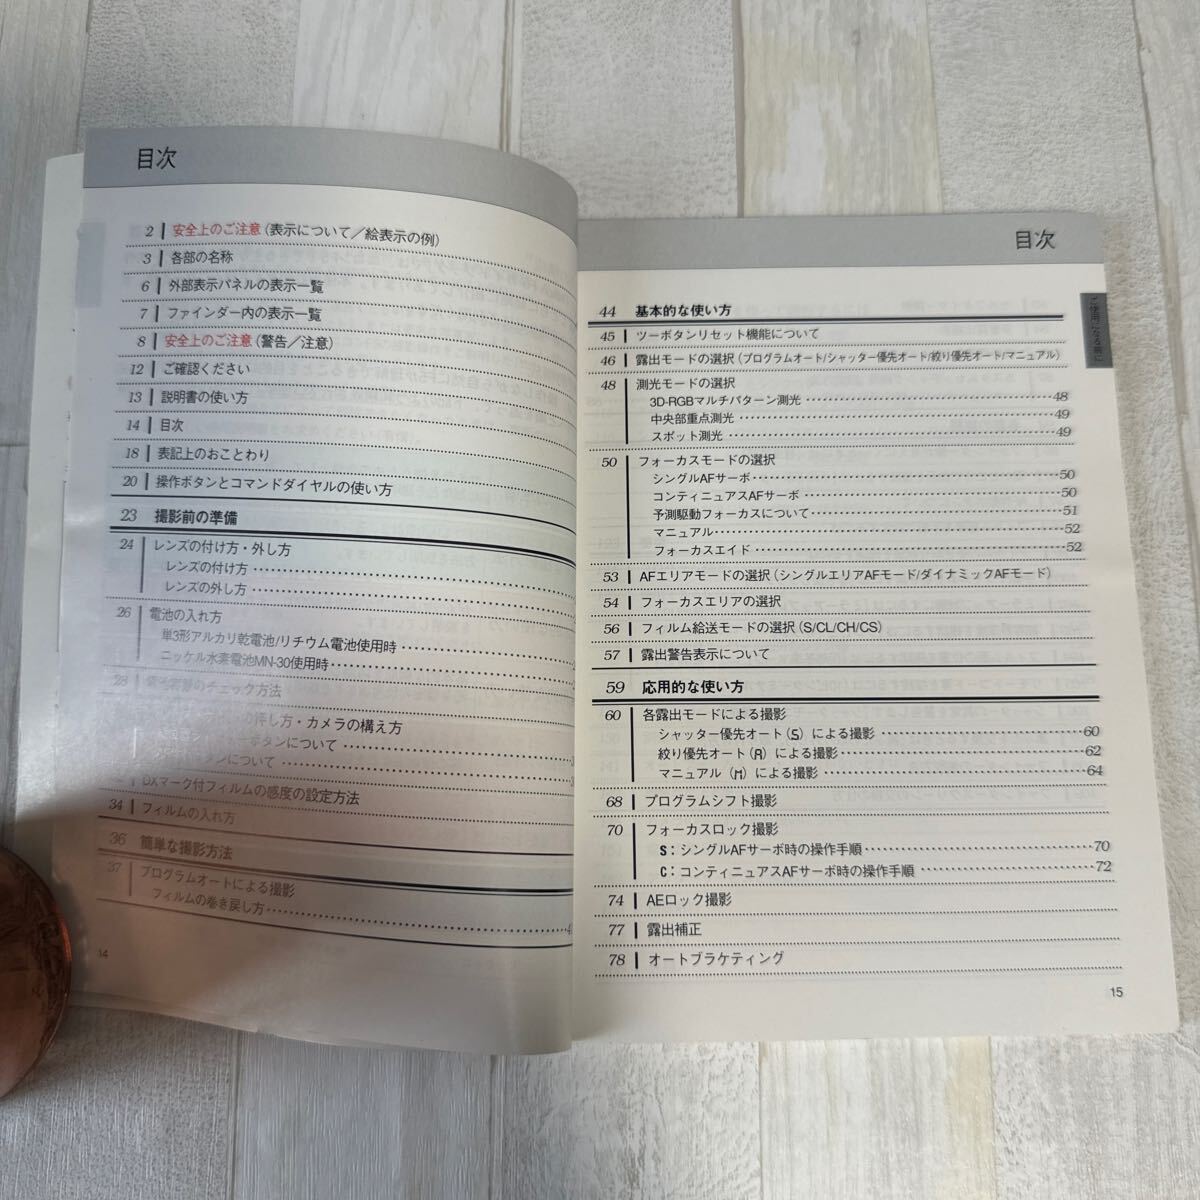 目次
2 安全上のご注意(表示について／絵表示の例)
3 各部の名称
6 外部表示パネルの表示一覧
7 ファインダー内の表示一覧
8 安全上のご注意(警告／注意)
12 ご確認ください
13 説明書の使い方
14 目次
18 表記上のおことわり
20 操作ボタンとコマンドダイヤルの使い方
23 撮影前の準備
24 レンズの付け方・外し方
レンズの付け方
レンズの外し方
26 電池の入れ方
単3形アルカリ乾電池/リチウム電池使用時
ニッケル水素電池MN-30使用時
28 のチェック方法
の押し方・カメラの構え方
ボタンについて
タンについて
DXマーク付フィルムの感度の設定方法
34 フィルムの入れ方
36 簡単な撮影方法
37 プログラムオートによる撮影
フィルムの巻き戻し方
14
目次
ご使用になる前に
44 基本的な使い方
45 ツーボタンリセット機能について
46 露出モードの選択(プログラムオート/シャッター優先オート/絞り優先オート/マニュアル)
48 測光モードの選択
3D-RGBマルチパターン測光 48
中央部重点測光 49
スポット測光 49
50 フォーカスモードの選択
シングルAFサーボ 50
コンティニュアスAFサーボ 50
予測駆動フォーカスについて 51
マニュアル 52
フォーカスエイド 52
53 AFエリアモードの選択(シングルエリアAFモード/ダイナミックAFモード)
54 フォーカスエリアの選択
56 フィルム給送モードの選択(S/CL/CH/CS)
57 露出警告表示について
59 応用的な使い方
60 各露出モードによる撮影
シャッター優先オート(S)による撮影 60
絞り優先オート(A)による撮影 62
マニュアル(M)による撮影 64
68 プログラムシフト撮影
70 フォーカスロック撮影
S：シングルAFサーボ時の操作手順 70
C：コンティニュアスAFサーボ時の操作手順 72
74 AEロック撮影
77 露出補正
78 オートブラケティング
15